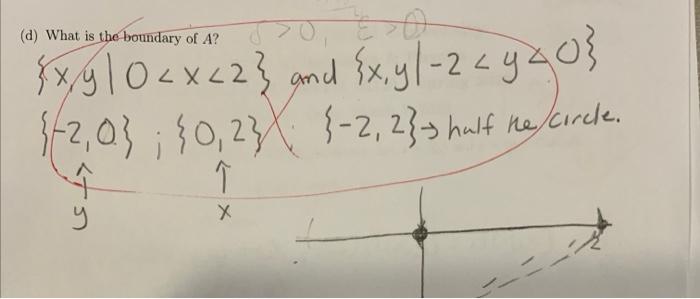 (d) What is the boundary of A?
δ>0, ε>0
{x,y | 0<x<2} and {x,y | -2<y<0}
{-2,0} ; {0,2} {-2,2}→ half the circle.
↑ ↑
y x
2